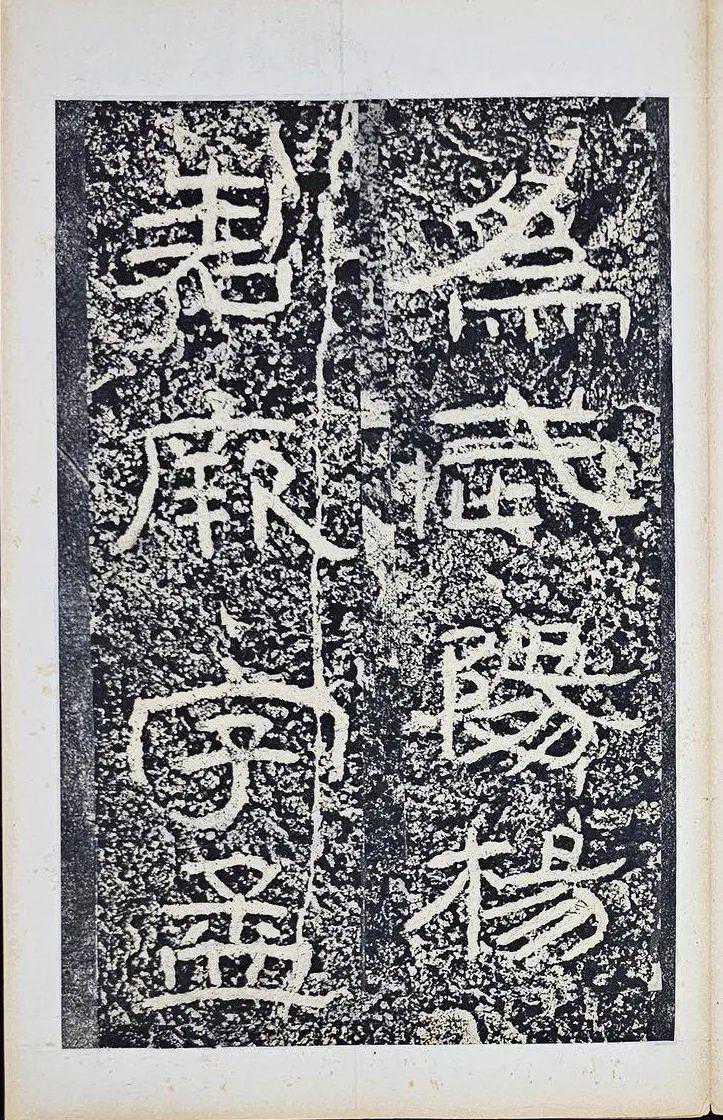 為武陽楊
君厥字孟